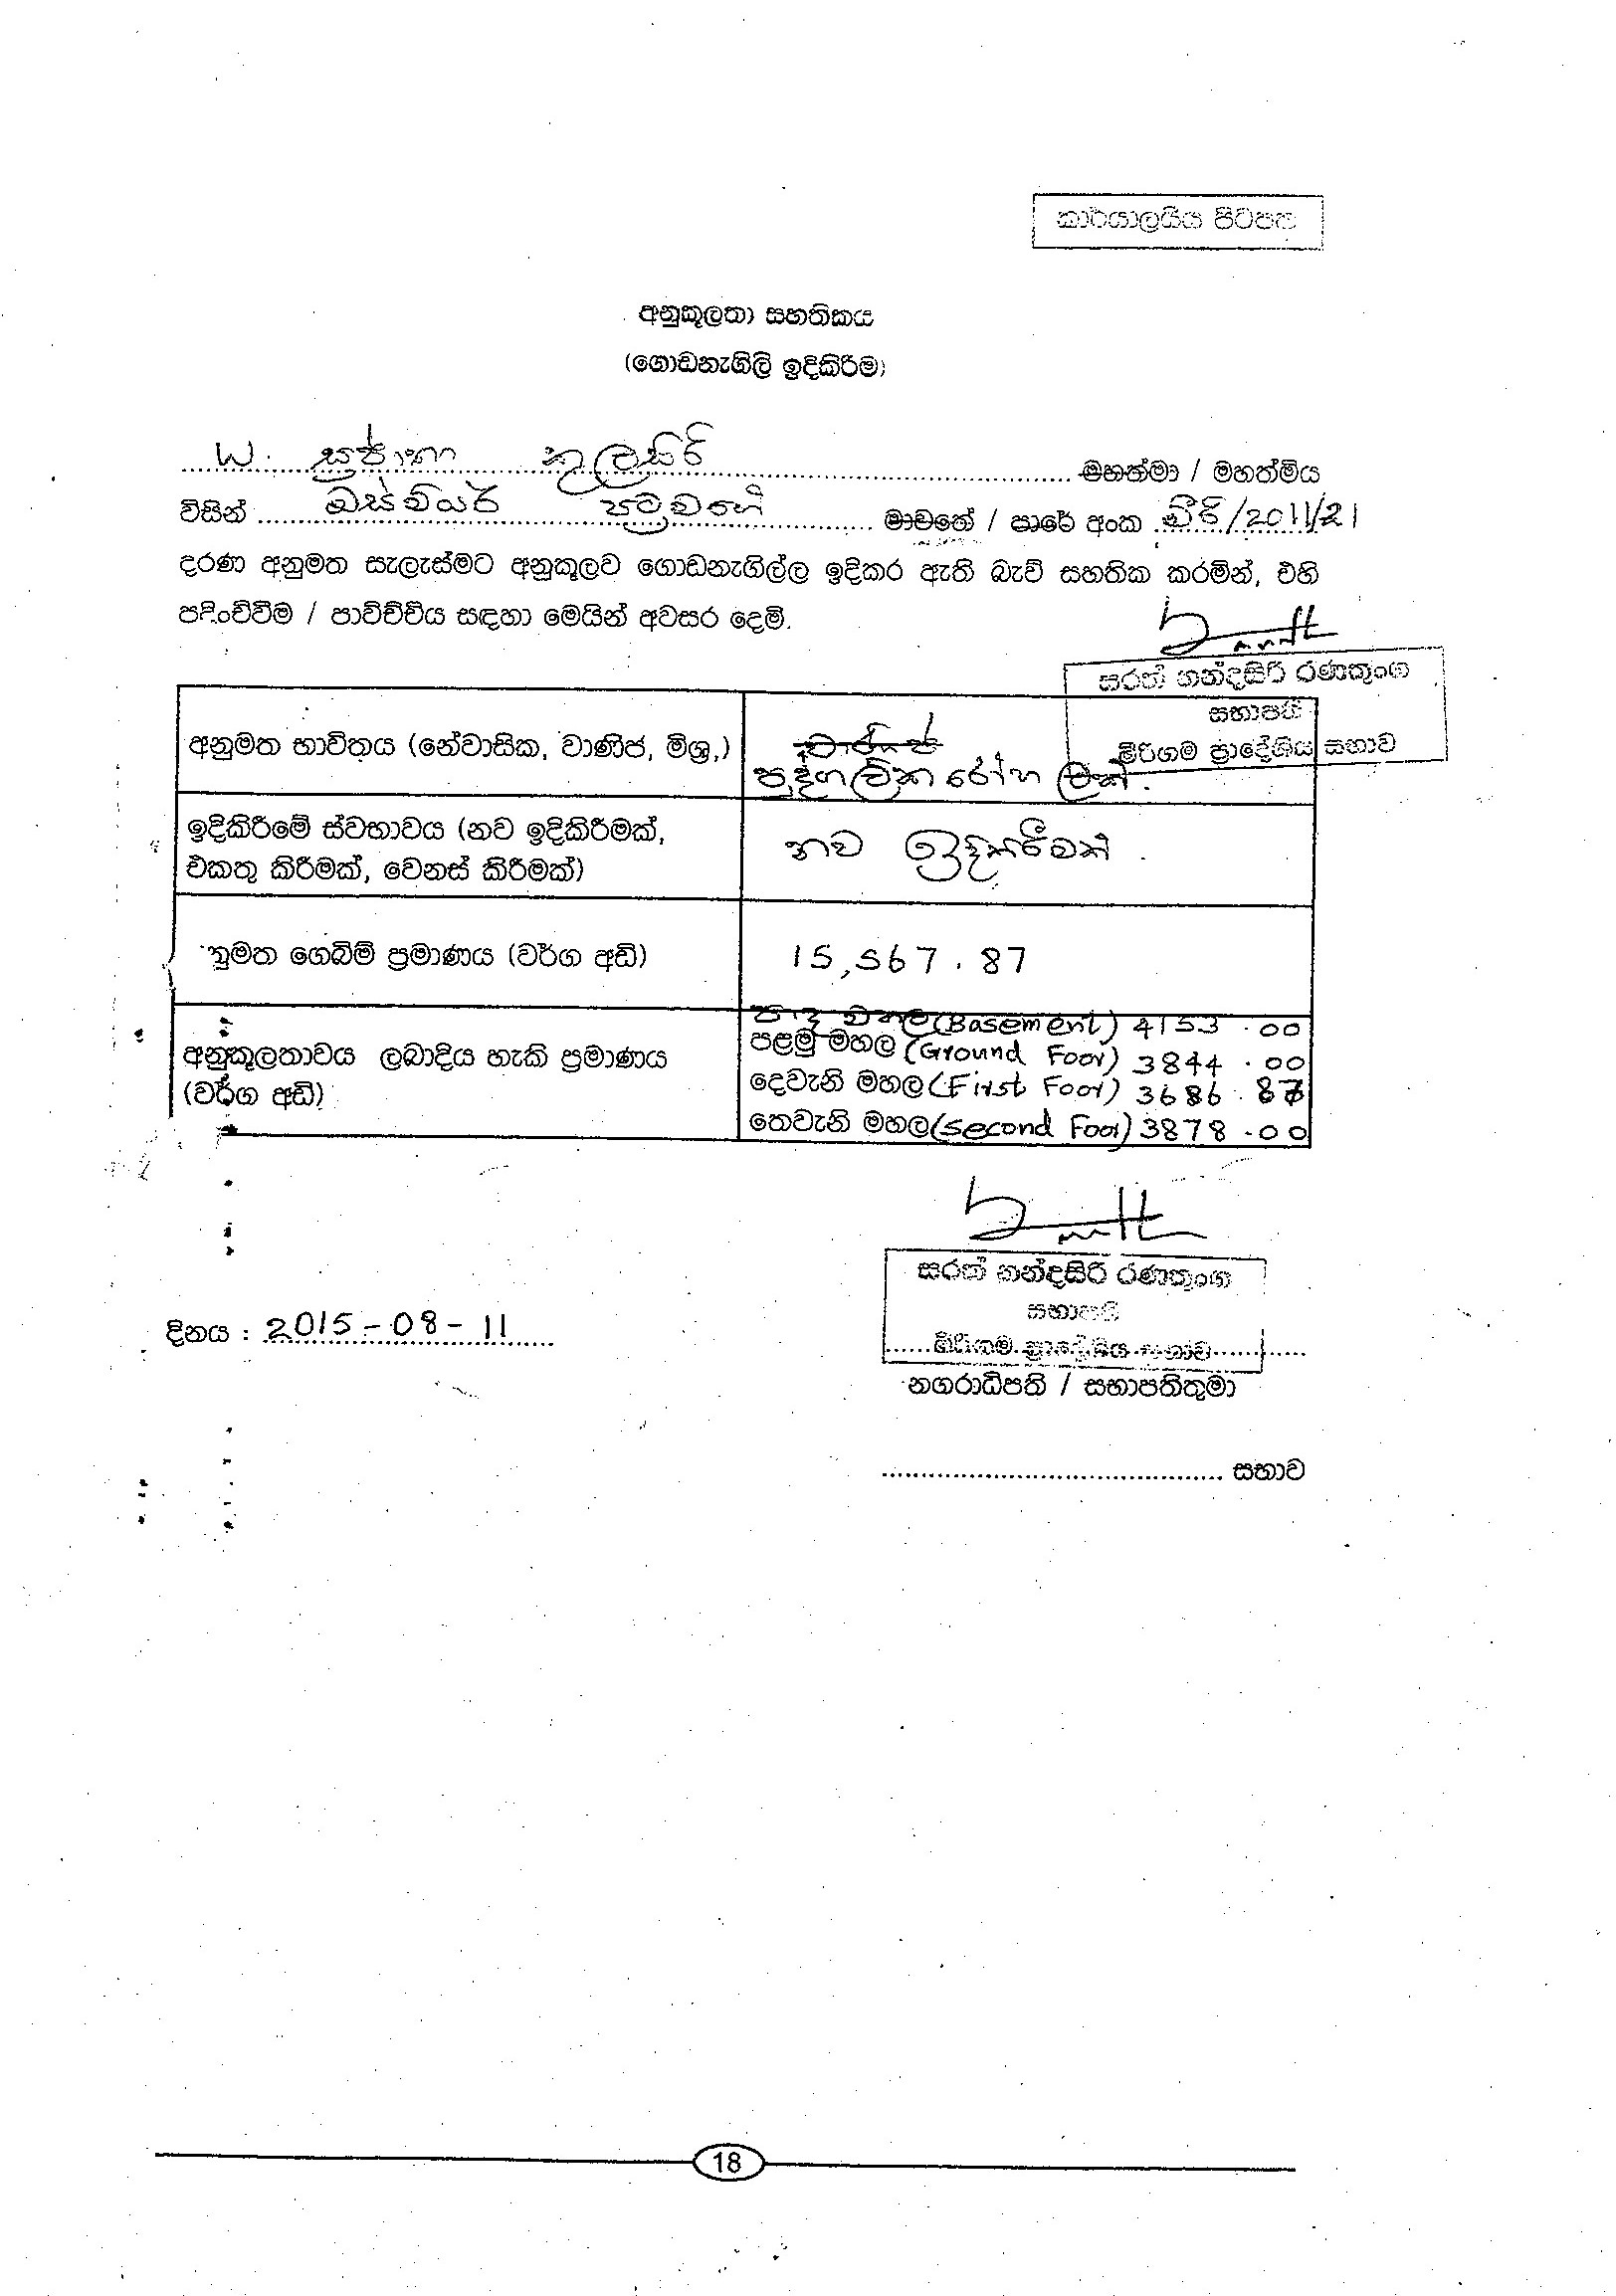 කාර්යාලයීය පිටපත
අනුකූලතා සහතිකය
(ගොඩනැගිලි ඉදිකිරීම)
W. සුජාතා කුලසිරි මහත්මා / මහත්මිය
විසින් පටුමගේ මාවතේ / පාරේ අංක මීරි/2011/21
දරණ අනුමත සැලැස්මට අනුකූලව ගොඩනැගිල්ල ඉදිකර ඇති බැව් සහතික කරමින්, එහි
පදිංචිවීම / පාවිච්චිය සඳහා මෙයින් අවසර දෙමි.
සරත් නන්දසිරි රණතුංග
සභාපති
මීරිගම ප්‍රාදේශිය සභාව
අනුමත භාවිතය (නේවාසික, වාණිජ, මිශ්‍ර,) වාණිජ
පුද්ගලික රෝහලක්.
ඉදිකිරීමේ ස්වභාවය (නව ඉදිකිරීමක්,
එකතු කිරීමක්, වෙනස් කිරීමක්) නව ඉදිකිරීමක්.
නුමත ගෙබිම් ප්‍රමාණය (වර්ග අඩි) 15,567.87
(Basement) 4153.00
පළමු මහල (Ground Foor) 3844.00
අනුකූලතාවය ලබාදිය හැකි ප්‍රමාණය
දෙවැනි මහල (First Foor) 3686.87
(වර්ග අඩි)
තෙවැනි මහල (second Foor) 3878.00
සරත් නන්දසිරි රණතුංග
සභාපති
දිනය : 2015-08-11
මීරිගම ප්‍රාදේශිය සභාව
නගරාධිපති / සභාපතිතුමා
සභාව
18